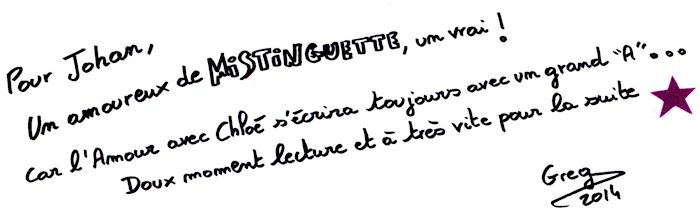 Pour Johan,
Un amoureux de MiSTiNGUETTE, un vrai !
Car l'Amour avec Chloé s'écrira toujours avec un grand "A"...
Doux moment lecture et à très vite pour la suite
Greg
2014